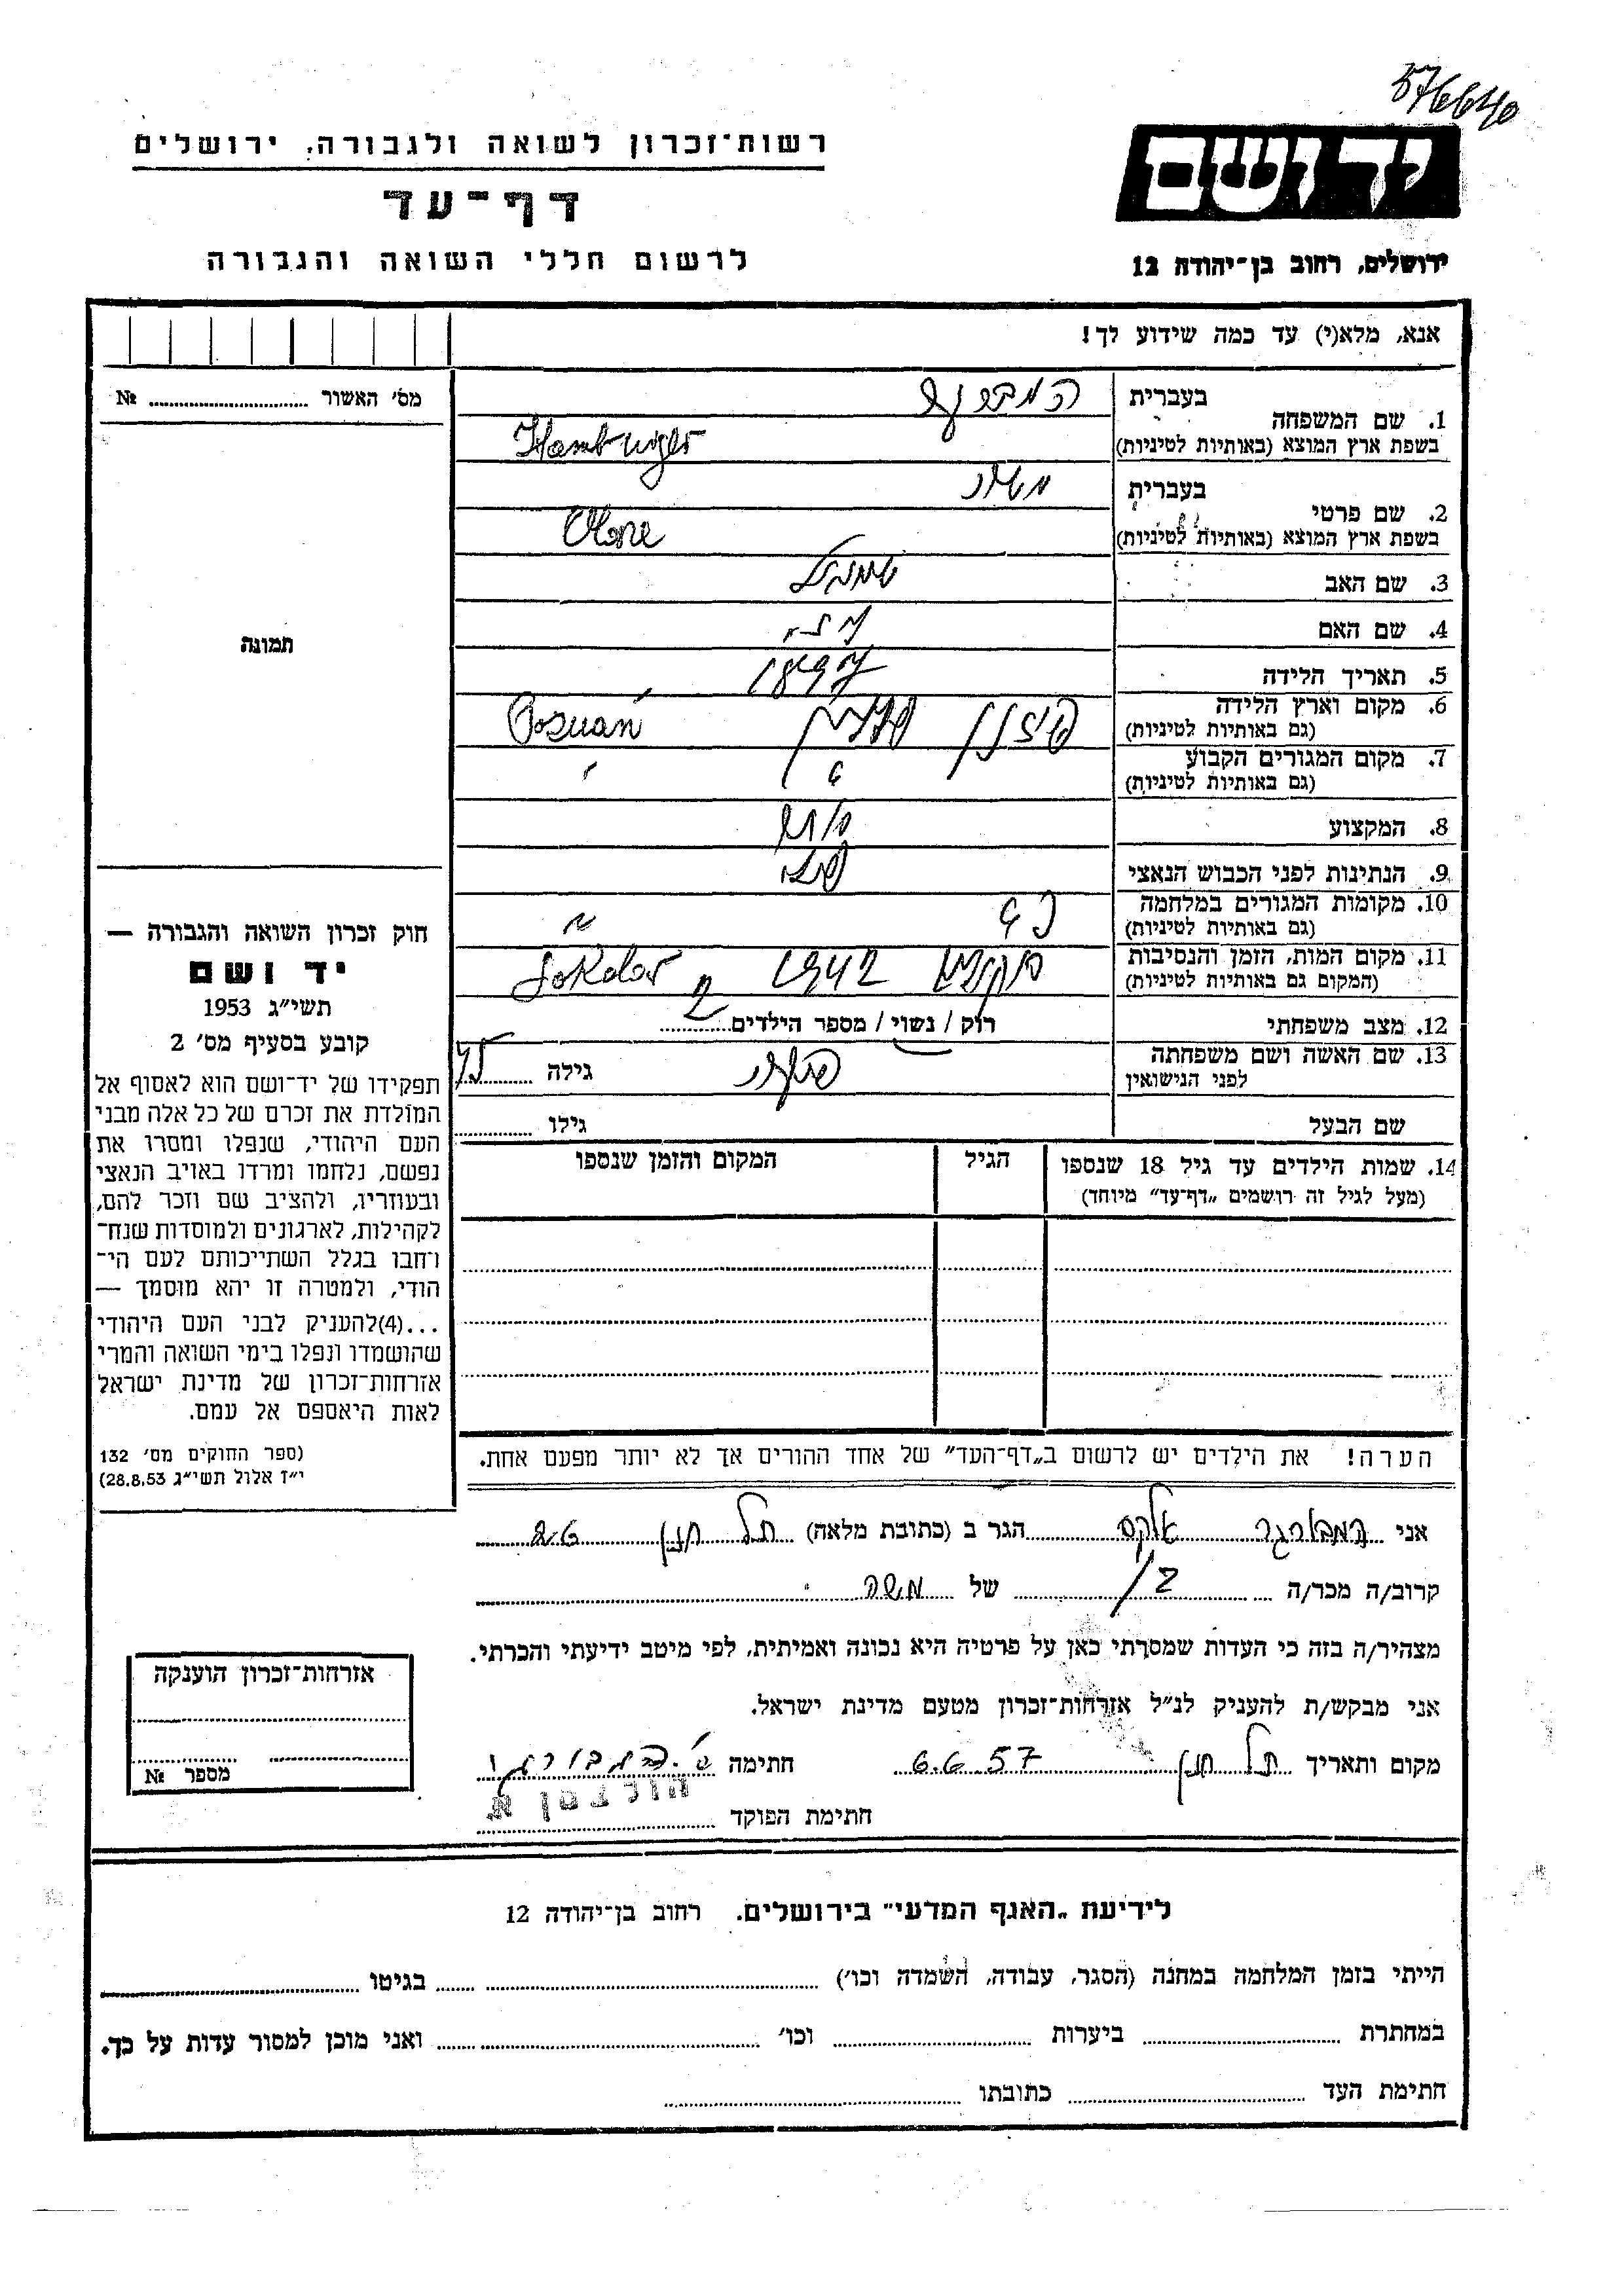 576640
רשות־זכרון לשואה ולגבורה, ירושלים
יד ושם
דף־עד
לרשום חללי השואה והגבורה
ירושלים, רחוב בן־יהודה 12
אנא, מלא(י) עד כמה שידוע לך!
מס' האשור ........ №
תמונה
1. שם המשפחה
בעברית
בשפת ארץ המוצא (באותיות לטיניות) Hamburger
2. שם פרטי
בעברית
בשפת ארץ המוצא (באותיות לטיניות)
3. שם האב שמואל
4. שם האם
5. תאריך הלידה 1897
6. מקום וארץ הלידה פוזנן פולין Poznań
(גם באותיות לטיניות)
7. מקום המגורים הקבוע
(גם באותיות לטיניות)
8. המקצוע
9. הנתינות לפני הכבוש הנאצי
10. מקומות המגורים במלחמה
(גם באותיות לטיניות)
11. מקום המות, הזמן והנסיבות 1942
(המקום גם באותיות לטיניות)
12. מצב משפחתי רוק / נשוי / מספר הילדים 2
13. שם האשה ושם משפחתה
לפני הנישואין
גילה 45
שם הבעל גילו
14. שמות הילדים עד גיל 18 שנספו
(מעל לגיל זה רושמים „דף־עד" מיוחד)
הגיל
המקום והזמן שנספו
הערה! את הילדים יש לרשום ב„דף־העד" של אחד ההורים אך לא יותר מפעם אחת.
חוק זכרון השואה והגבורה —
יד ושם
תשי"ג 1953
קובע בסעיף מס' 2
תפקידו של יד־ושם הוא לאסוף אל
המולדת את זכרם של כל אלה מבני
העם היהודי, שנפלו ומסרו את
נפשם, נלחמו ומרדו באויב הנאצי
ובעוזריו, ולהציב שם וזכר להם,
לקהילות, לארגונים ולמוסדות שנח־
רחבו בגלל השתייכותם לעם הי־
הודי, ולמטרה זו יהא מוסמך —
...(4)להעניק לבני העם היהודי
שהושמדו ונפלו בימי השואה והמרי
אזרחות־זכרון של מדינת ישראל
לאות היאספם אל עמם.
(ספר החוקים מס' 132
י"ז אלול תשי"ג 28.8.53)
אני המבורגר אלקס הגר ב (כתובת מלאה) תל חנן
קרוב/ה מכר/ה של משה
מצהיר/ה בזה כי העדות שמסרתי כאן על פרטיה היא נכונה ואמיתית, לפי מיטב ידיעתי והכרתי.
אני מבקש/ת להעניק לנ"ל אזרחות־זכרון מטעם מדינת ישראל.
מקום ותאריך תל חנן 6.6.57 חתימה
חתימת הפוקד
אזרחות־זכרון הוענקה
מספר №
לידיעת „האגף המדעי" בירושלים. רחוב בן־יהודה 12
הייתי בזמן המלחמה במחנה (הסגר, עבודה, השמדה וכו') בגיטו
במחתרת ביערות וכו' ואני מוכן למסור עדות על כך.
חתימת העד כתובתו